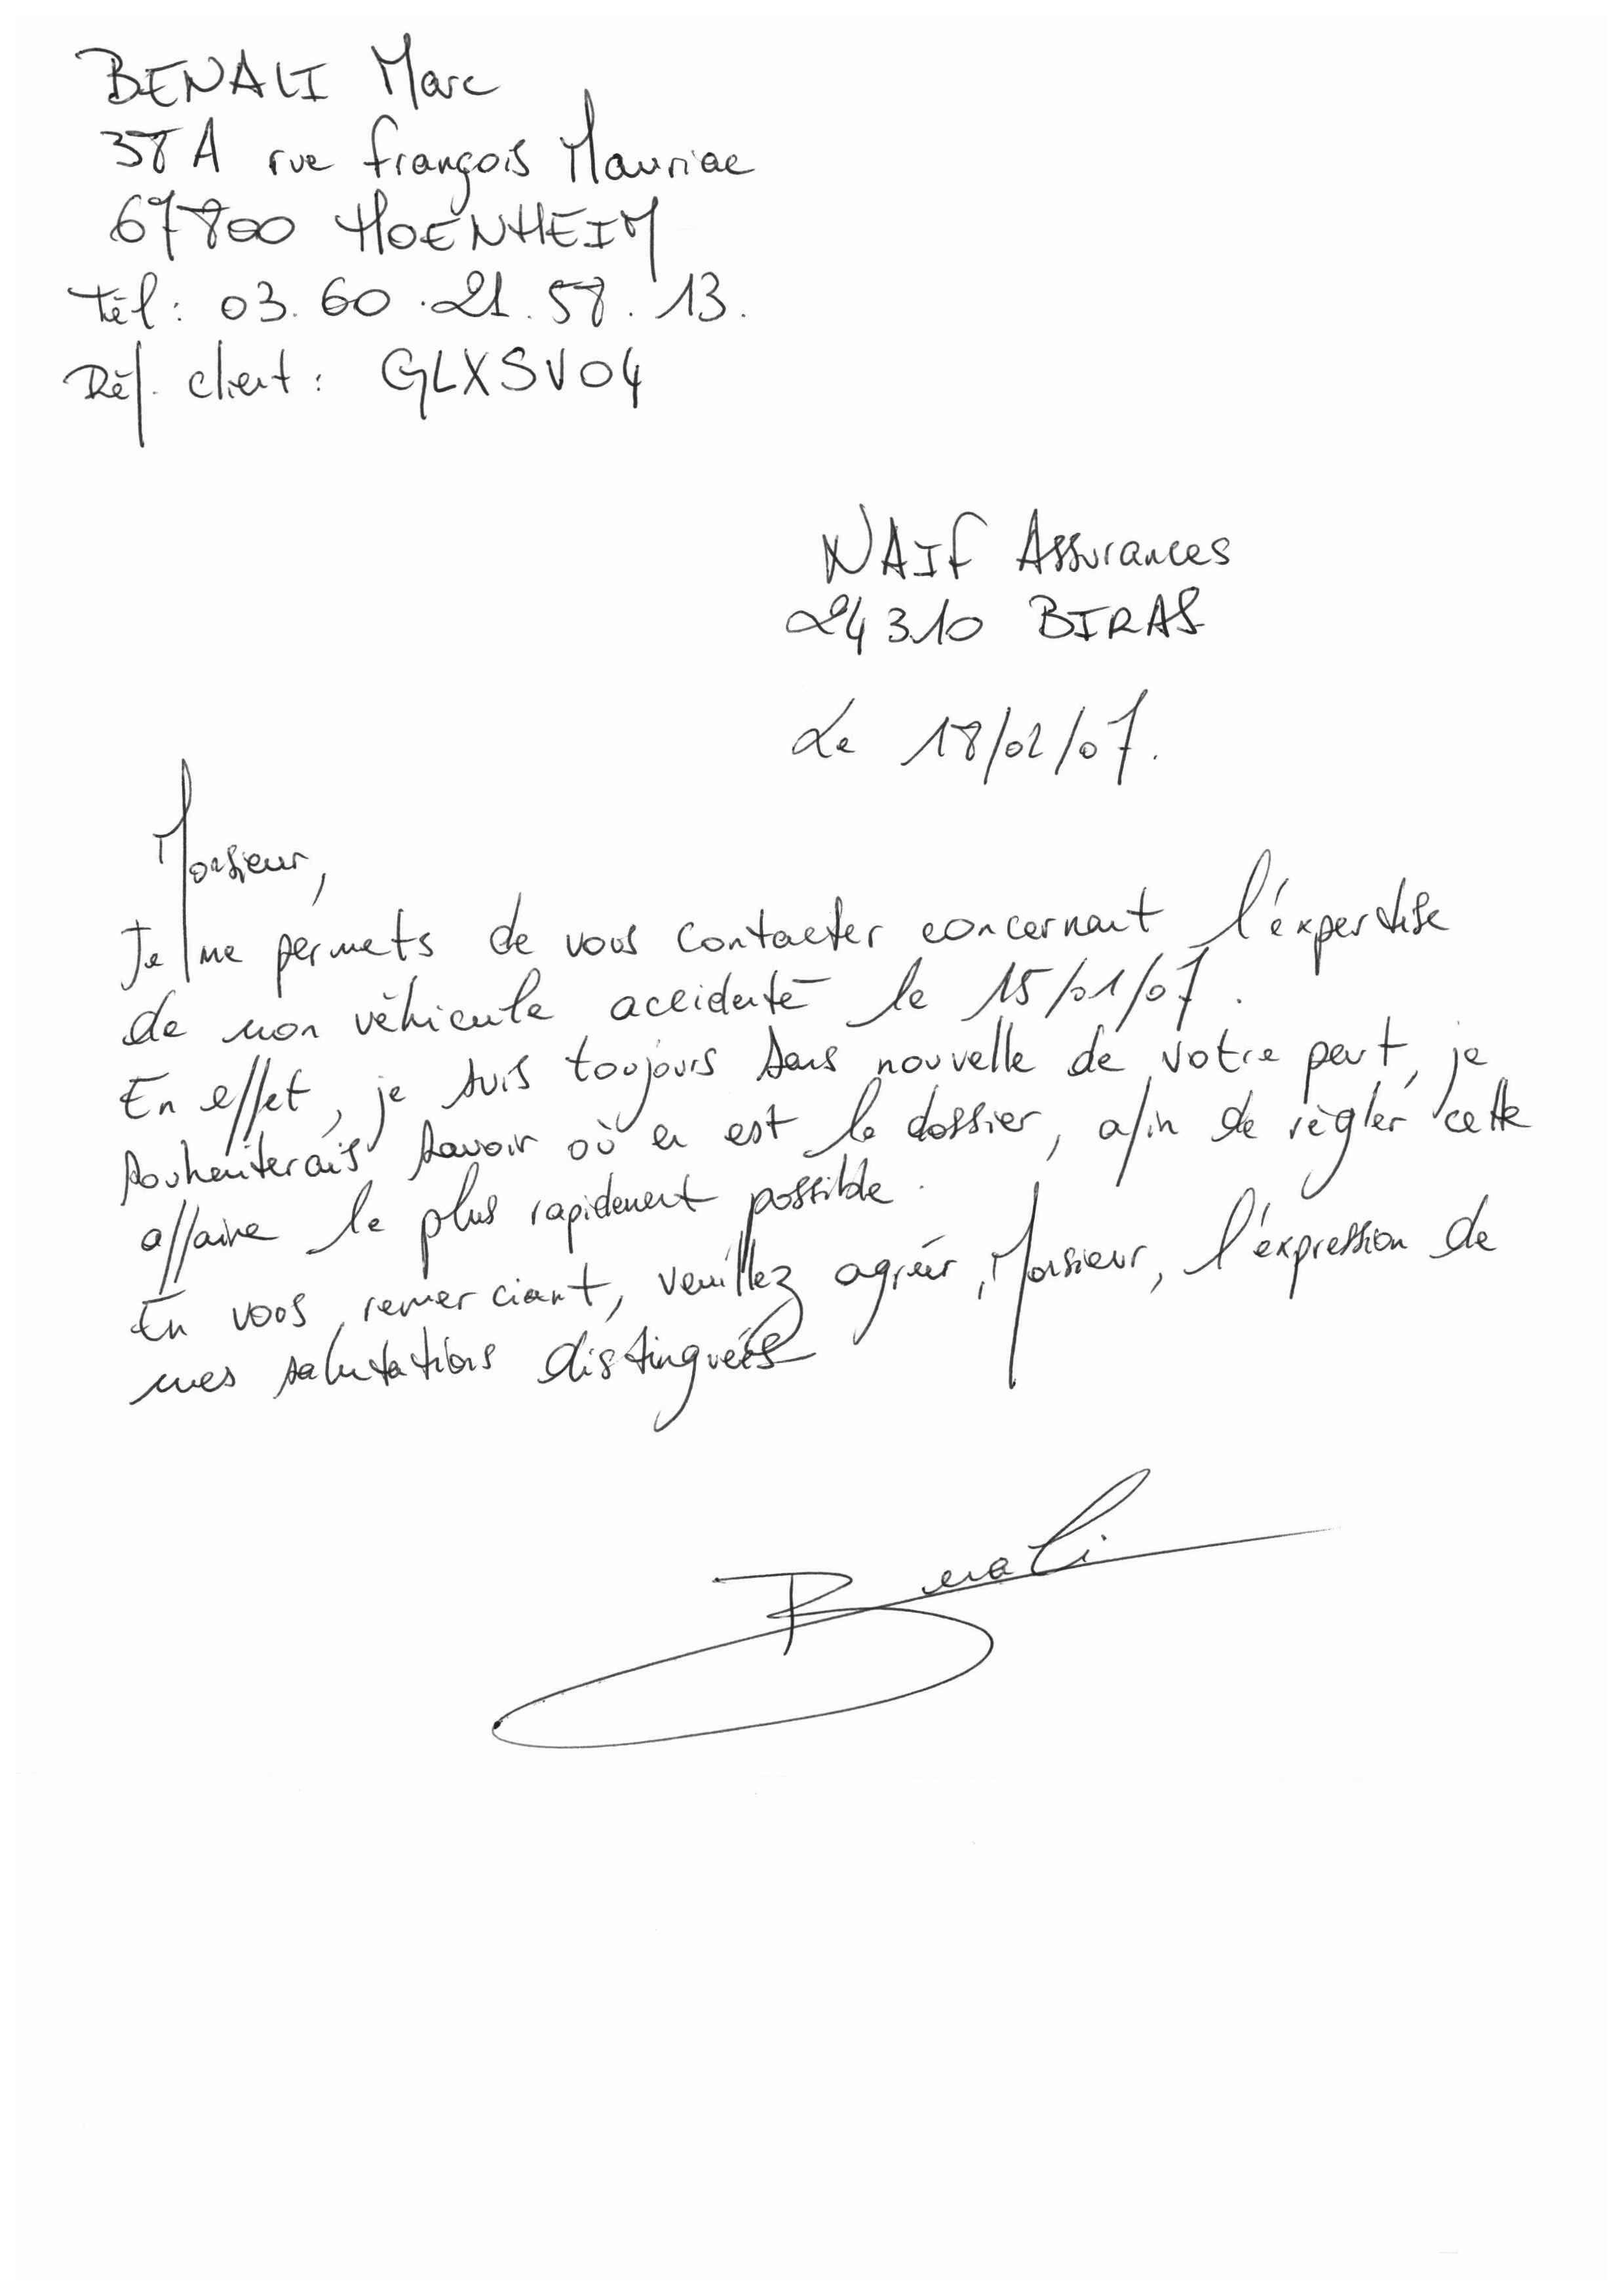 BENALI Marc
38A rue François Mauriac
67800 HOENHEIM
Tél : 03.60.21.58.13.
Réf. client : GLXSV04
NAIF Assurances
24310 BIRAS
Le 18/02/07.
Monsieur,
Je me permets de vous contacter concernant l'expertise
de mon véhicule accidenté le 15/01/07.
En effet, je suis toujours sans nouvelle de votre part, je
souhaiterais savoir où en est le dossier, afin de régler cette
affaire le plus rapidement possible.
En vous remerciant, veuillez agréer, Monsieur, l'expression de
mes salutations distinguées
Benali